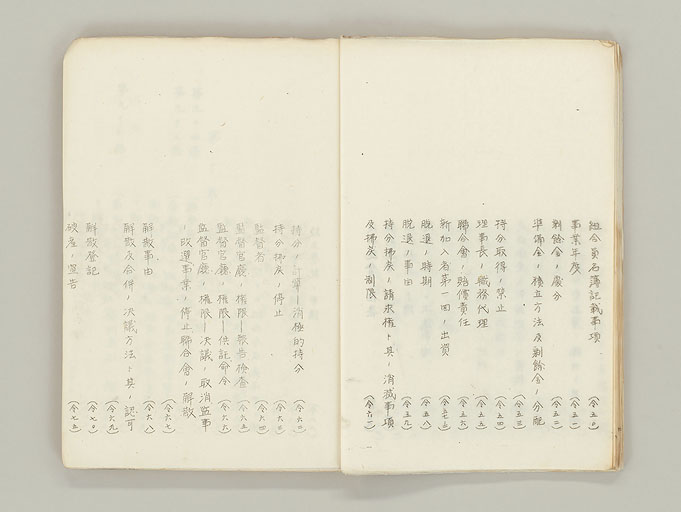 組合員名簿記載事項 (令五〇)
事業年度 (令五一)
剰餘金ノ處分 (令五二)
準備金ノ積立方法及剰餘金ノ分配 (令五三)
持分取得ノ禁止 (令五四)
理事長ノ職務代理 (令五五)
聯合會ノ賠償責任 (令五六)
新加入者第一回ノ出資 (令五七)
脱退ノ時期 (令五八)
脱退ノ事由 (令五九)
持分拂戻ノ請求權ト其ノ消滅事項
及拂戻ノ制限 (令六一)
持分ノ計算—消極的持分 (令六二)
持分拂戻ノ停止 (令六三)
監督者 (令六四)
監督官廳ノ權限—報告檢査 (令六五)
監督官廳ノ權限—供託命令 (令六六)
監督官廳ノ權限—決議ノ取消監事
ノ改選事業ノ停止聯合會ノ解散
(令六七)
解散事由 (令六八)
解散及合併ノ決議方法ト其ノ認可 (令六九)
解散登記 (令七〇)
破産ノ宣告 (令七五)